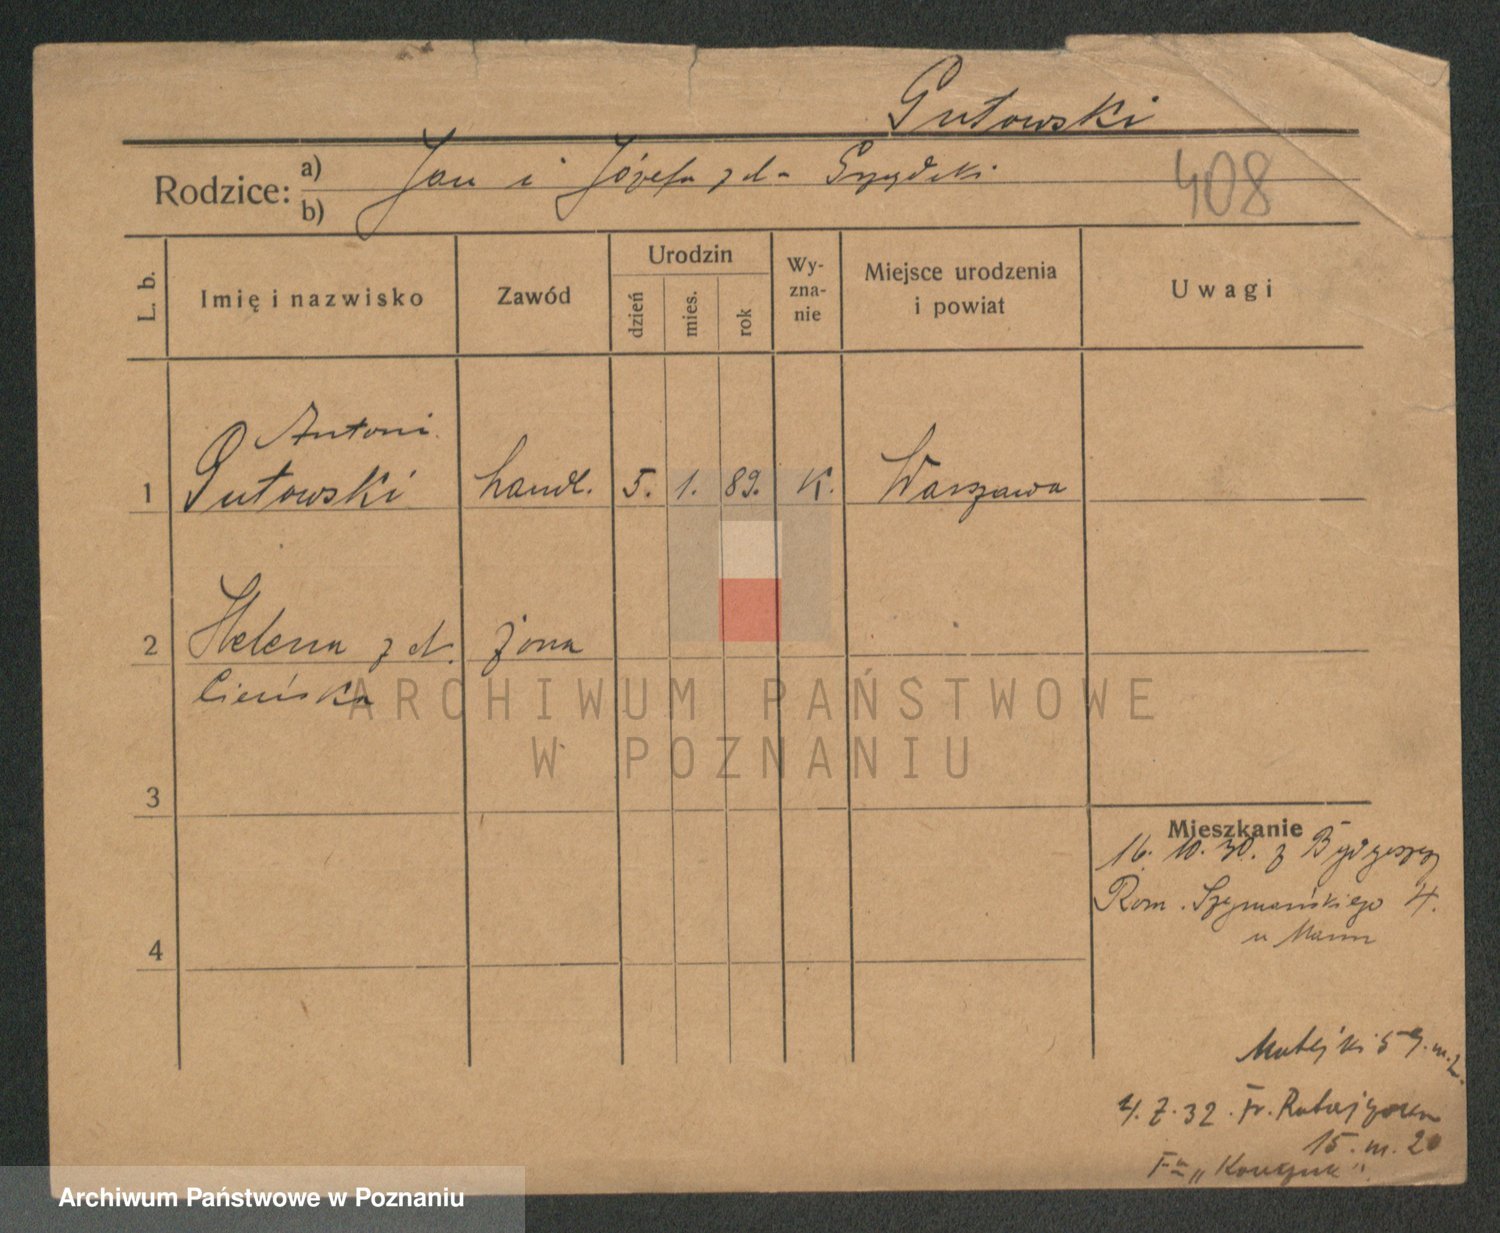 Gutowski
Rodzice: a) b)
Jan i Józefa z d.
408
L. b.
Imię i nazwisko
Zawód
Urodzin
dzień
mies.
rok
Wy-
zna-
nie
Miejsce urodzenia
i powiat
Uwagi
Antoni
1 Gutowski handl. 5. 1. 89. K. Warszawa
2 Helena z d. żona
Cieńska
ARCHIWUM PAŃSTWOWE
W POZNANIU
3
Mieszkanie
16. 10. 30. z Bydgoszczy
Rom. Szymańskiego 4.
u Mann
4
Matejki 59. m. 2.
4. 7. 32. Fr. Ratajczaka
15. m. 20
Fa "
Archiwum Państwowe w Poznaniu